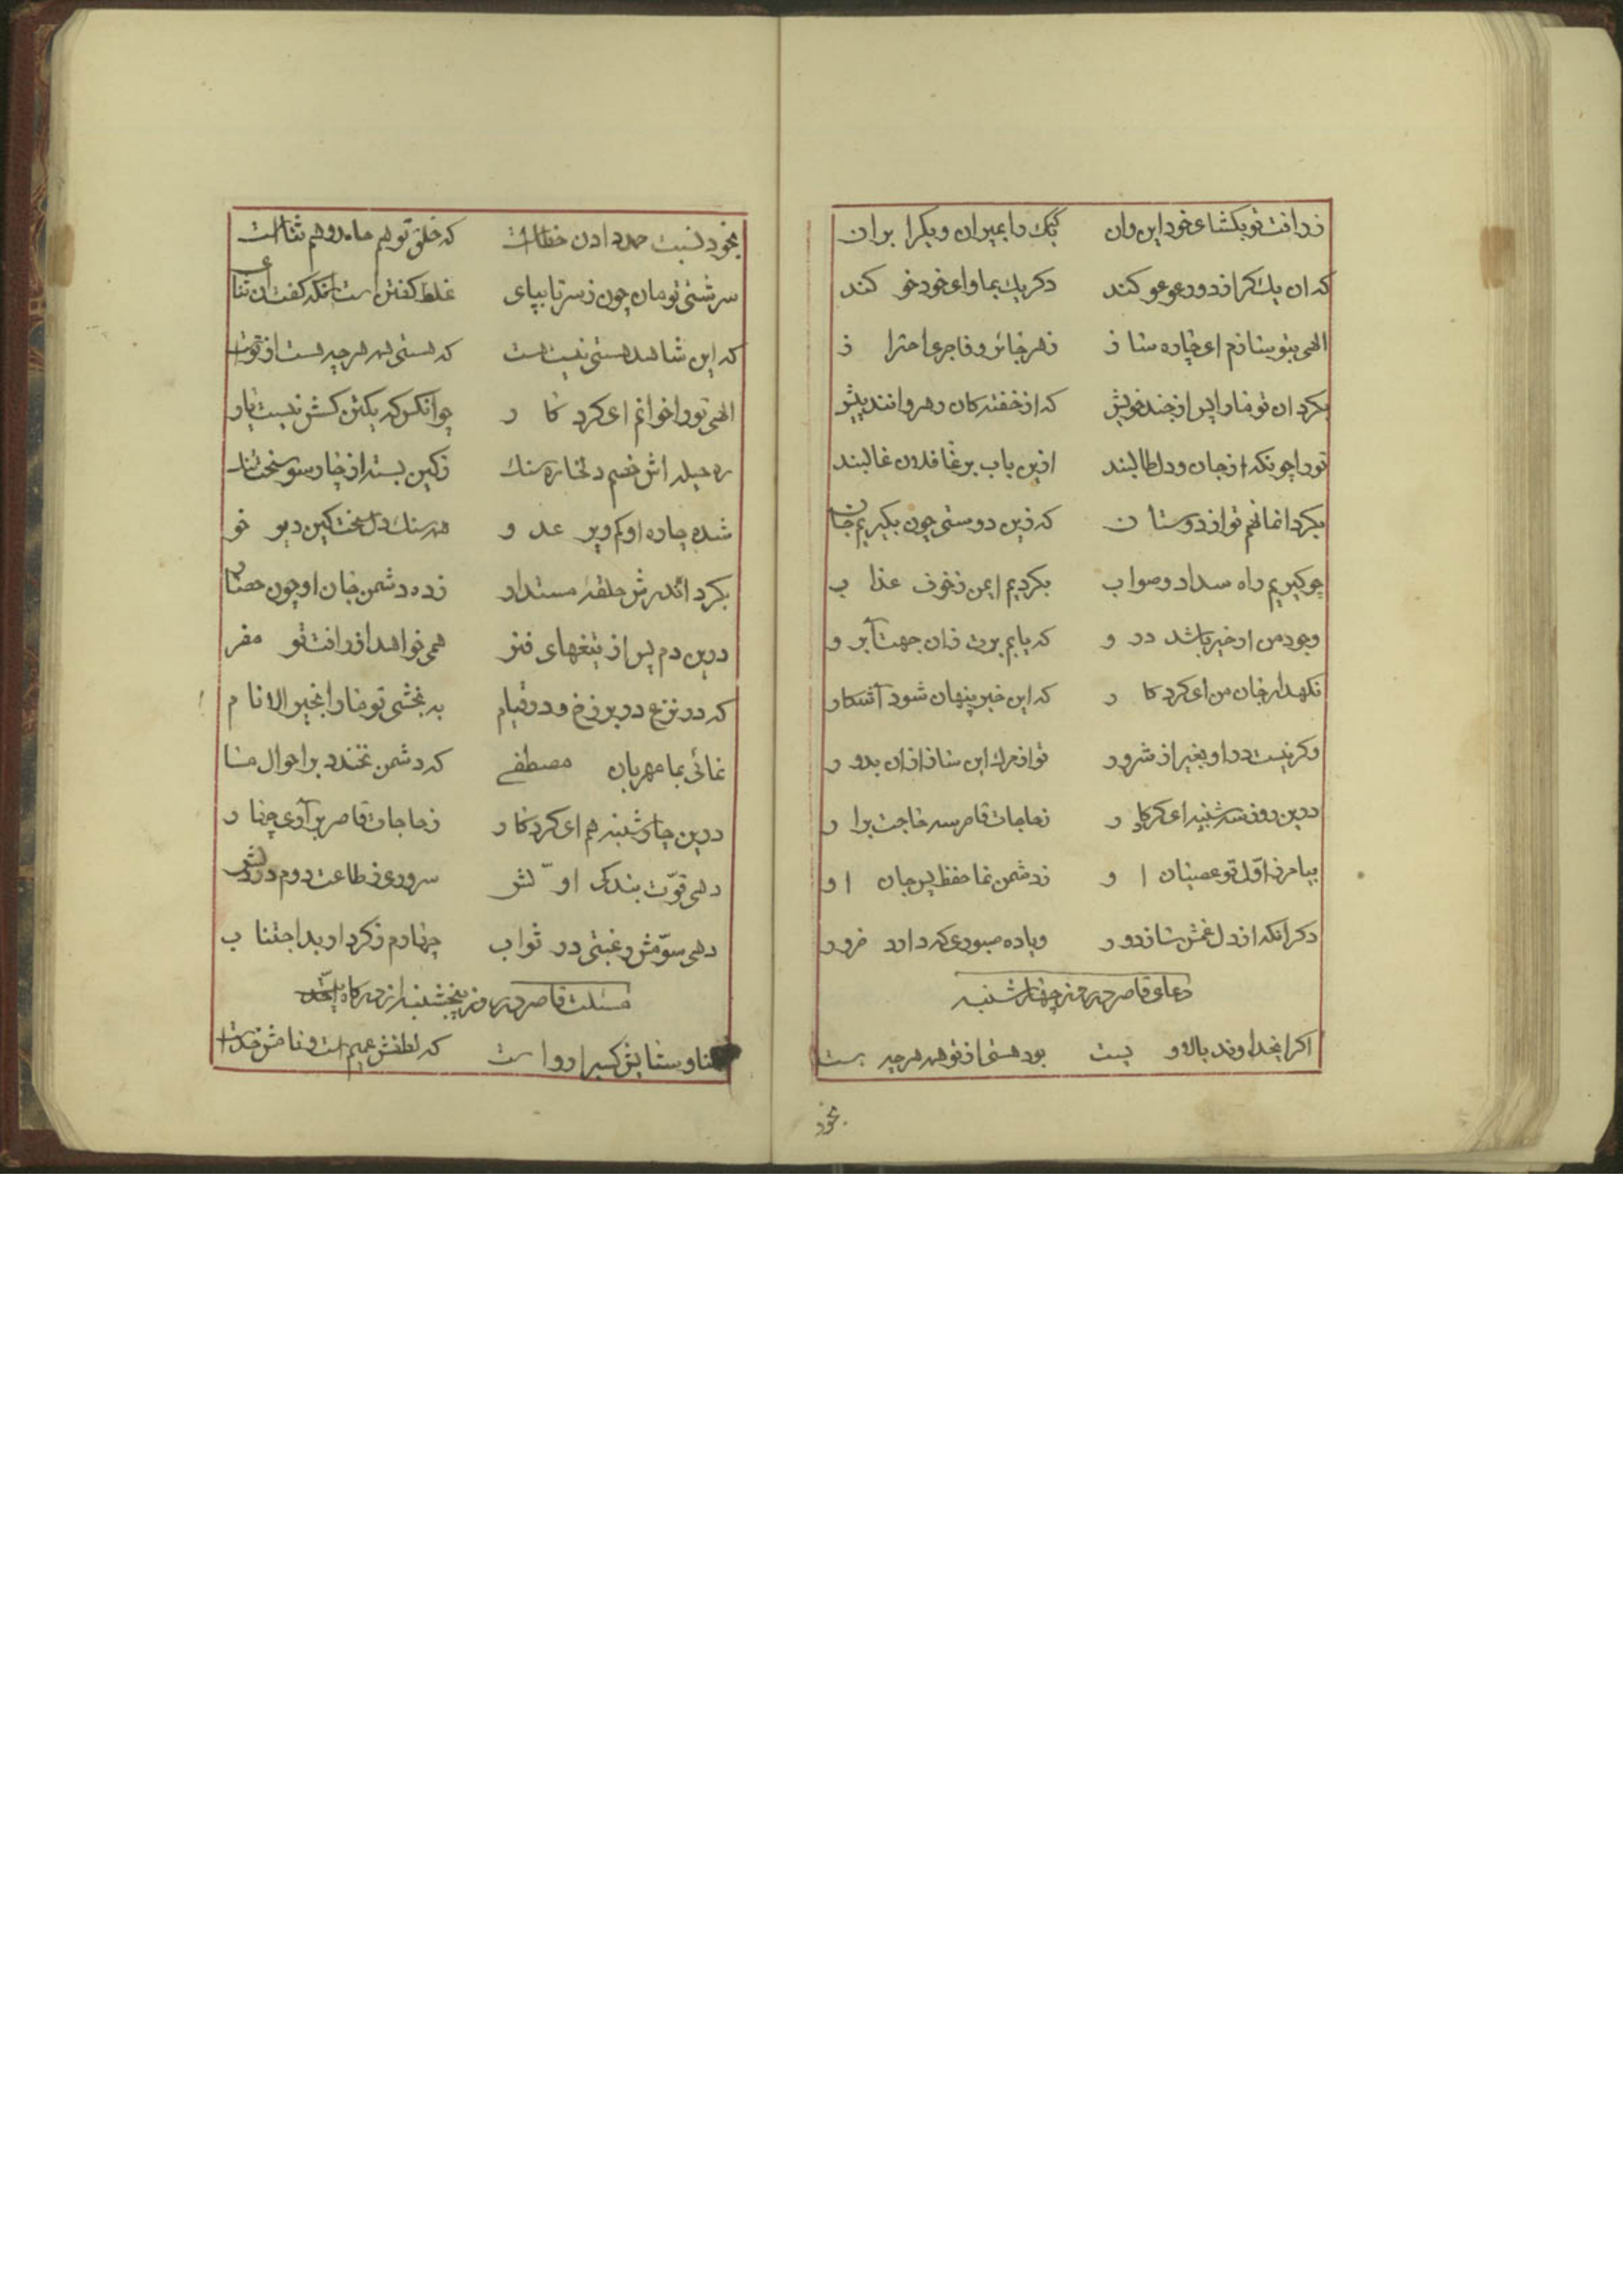 ز رافت تو بکشای خود این وان یک را بمیران و یکرا بران
که ان یک کر از دور عوعو کند دکر یک بماوای خود خو کند
الهی بتو ینازم ای چاره ساز ز هر جائر و فاجری احتراز
بکردان تو ما را پس از جند خویش که از خفته کان رهروانند پیش
تو را چونکه از جان و دل طالبند ازین باب بر غافلان غالبند
بکردانمانهم تو از دوستان که زین دوستی چون بکیریم جان
چو کیریم راه سداد و صواب بکردیم ایمن ز خوف عذاب
وجود من ار خیر باشد در و که یابم برت زان جهت آبرو
نکهدار جان من ای کردکار که این خیر پنهان شود آشکار
وکر نیست در او بغیر از شرور
درین روز سه شنبه ای کردکار ز حاجات قاصر سه حاجت برار
بیامرز اول تو عصیان او ز دشمن نما حفظ پس جان او
دکر انکه از دل غمش ساز دور و یا ده صبوری که دارد ضرور
دعای قاصر در روز چهارشنبه
اکر ایخداوند بالا و پست بود هستی از تو همه هرچه هست
بخود
بخود نسبت حمد دادن خطاست که خلق تو هم حامد و هم ثناست
سرشتی تومان چون ز سر تا بپای غلط کفتن است انکه کفت
که این شاهد هستی نیست هست که هستی همه هرچه هست از تو
الهی تو را خوانم ای کردکار چو انکس که یکتن کسش نیست یار
ره حیله اش خصم دلخاره سنک ز کین بسته از چار سو سخت تنک
شده چاره او کم و پر عدو همه سنک دل سخت کین دیو خو
بکرد اندرش حلقه مستدار زده دشمن جان او چون حصار
درین دم پس از تیغهای همی خواهد از رافت تو مفر
که در نزع و در برزخ و در قیام ببخشی تو ما را بخیر الانام
نمائی بما مهربان مصطفی که دشمن نخندد بر احوال ما
درین چارشنبه هم ای کردکار ز حاجات قاصر بر آوری چهار
دهی قوت بندکی اولش سروری ز طاعت دوم در دلش
دهی سومش رغبتی در ثواب چهارم ز کردار بد اجتناب
مسئلت قاصر در روز پنجشنبه از درکاه
ثنا و ستایش کسیرا رواست که لطفش عمیم است و نامش خداست